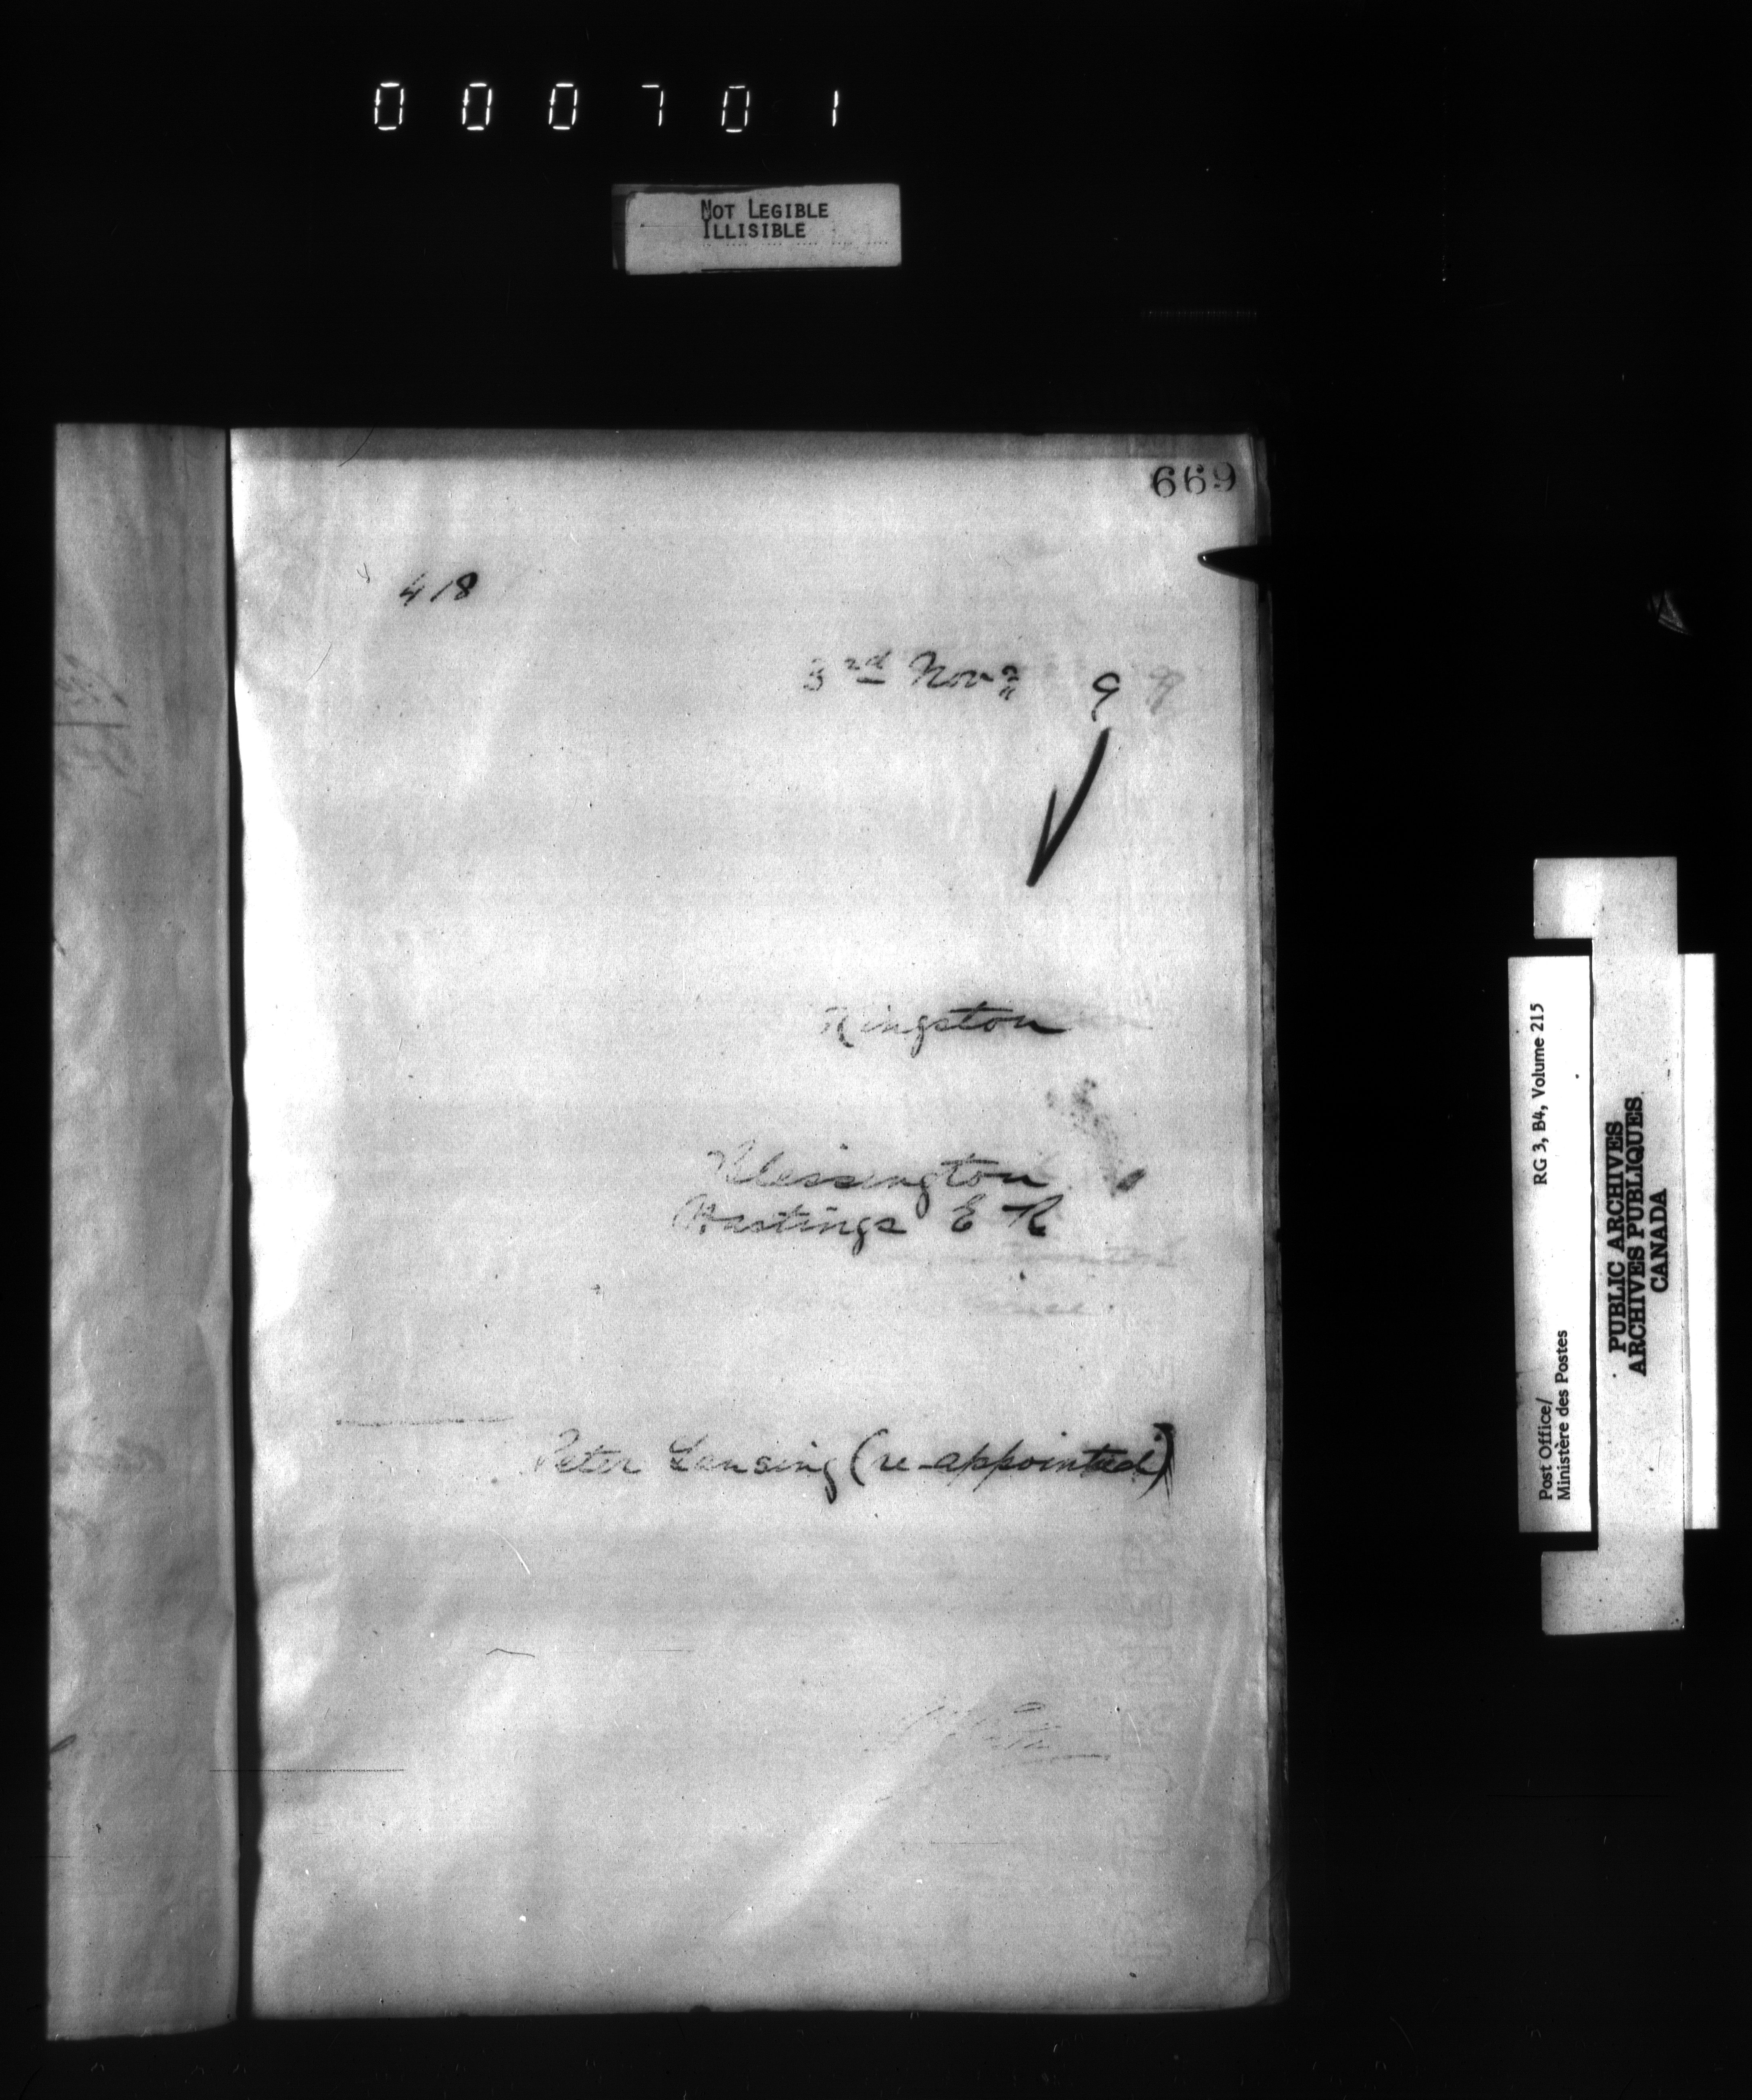 000701
NOT LEGIBLE
ILLISIBLE
669
418
3rd Novr 9
Kingston
Blessington
Hastings E R
Peter Lansing (re-appointed)
RG 3, B4, Volume 215
Post Office/
Ministère des Postes
PUBLIC ARCHIVES
ARCHIVES PUBLIQUES
CANADA